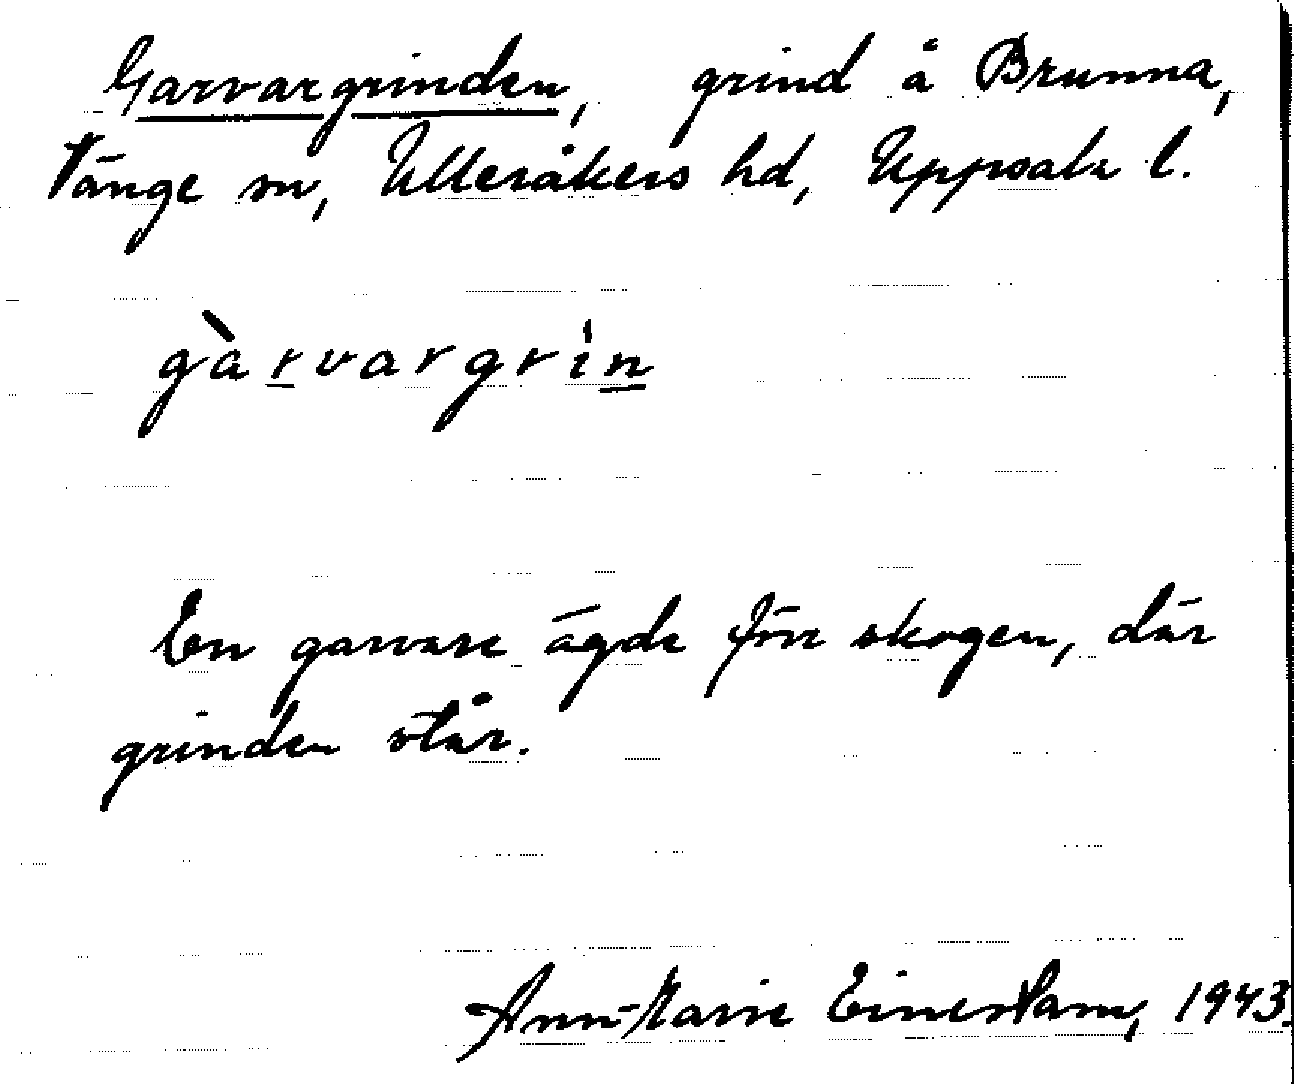 Garvargrinden, grind å Brunna,
Vänge sn, Ulleråkers hd, Uppsala l.
gàrvargrin
En garvare ägde förr skogen, där
grinden står.
Ann-Marie Einerstam, 1943.